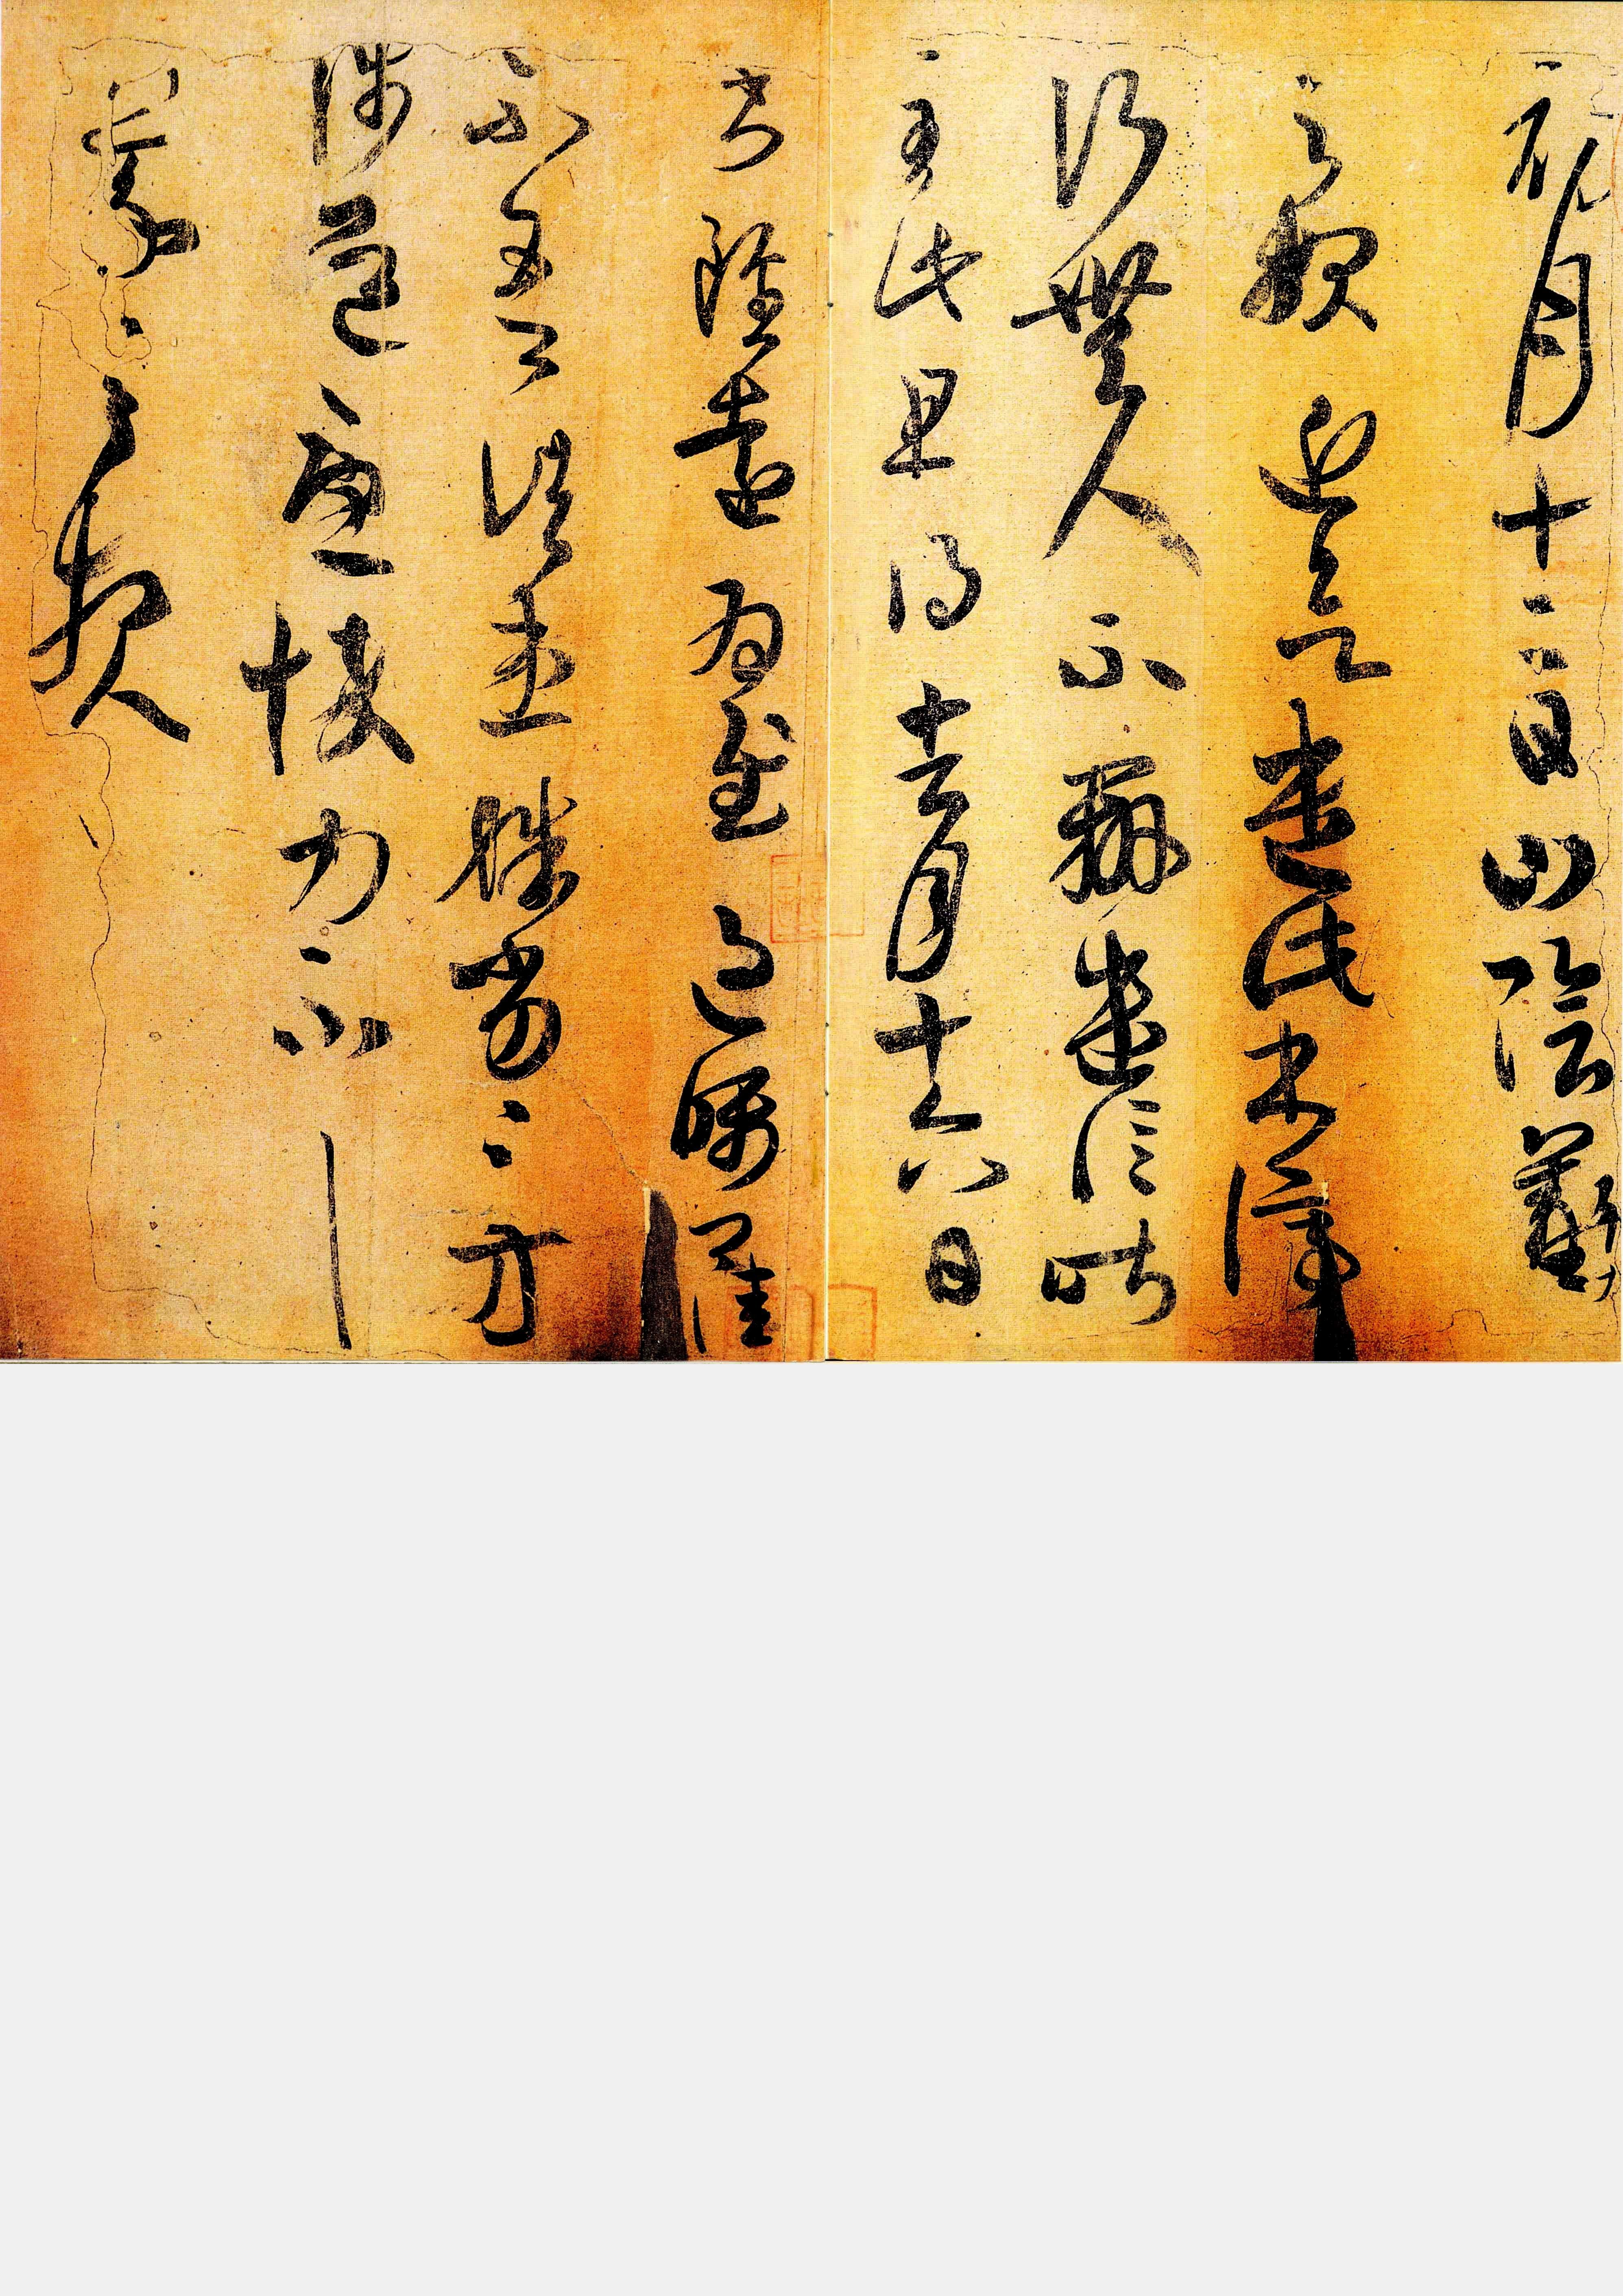 初月十二日山陰羲
之報近欲遣此書停
行無人不辦遣信昨
至此且得去月十六日
書雖遠為慰過囑卿佳
不吾諸患殊劣劣方
陟道憂悴力不具
羲之報